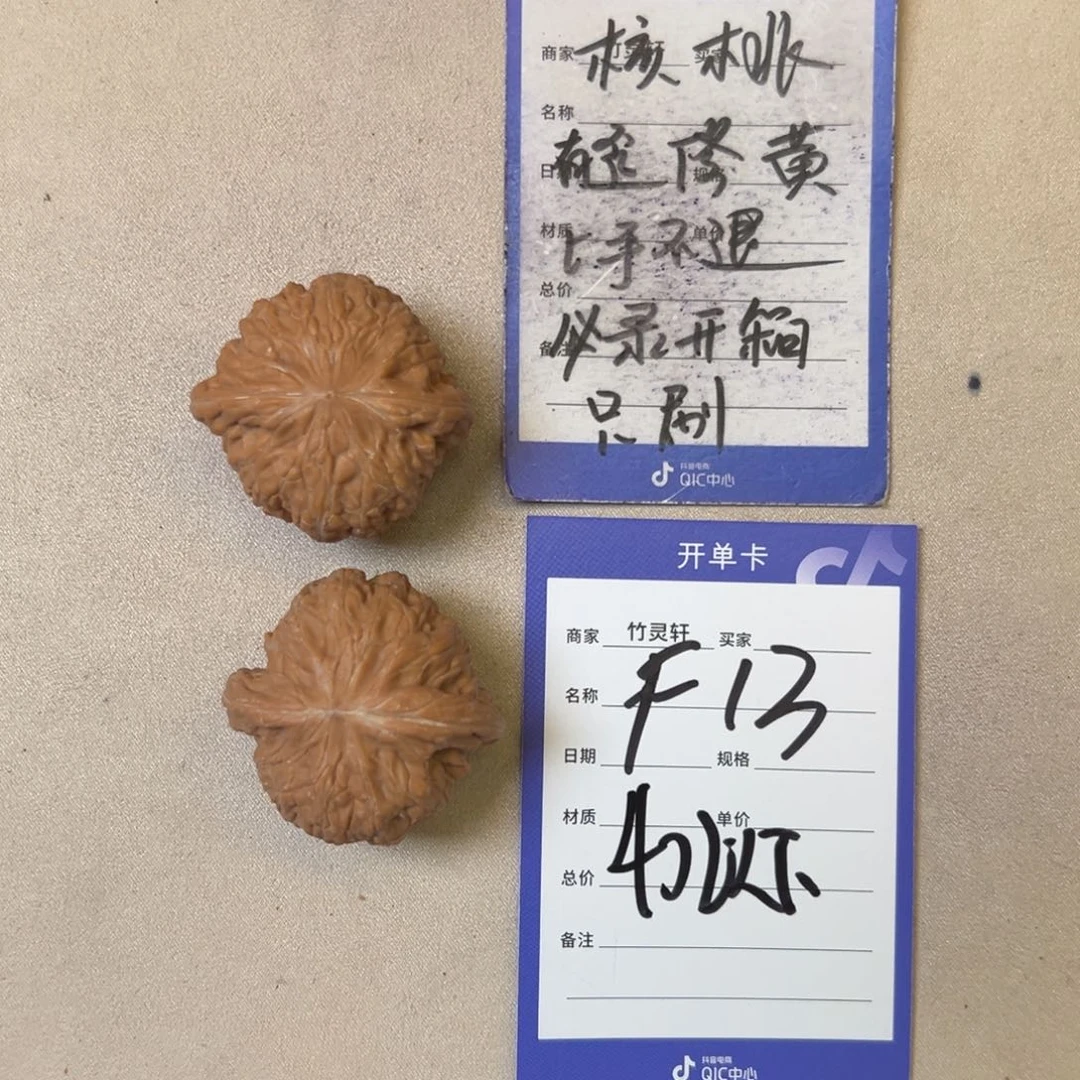 核桃
商家 竹灵轩 买家
名称
有歪 黄
日期 规格
材质 单价
上手不退
总价
必录开箱
备注
只刷
抖音电商
QIC中心
开单卡
商家 竹灵轩 买家
名称
F13
日期 规格
材质 单价
总价
备注
抖音电商
QIC中心